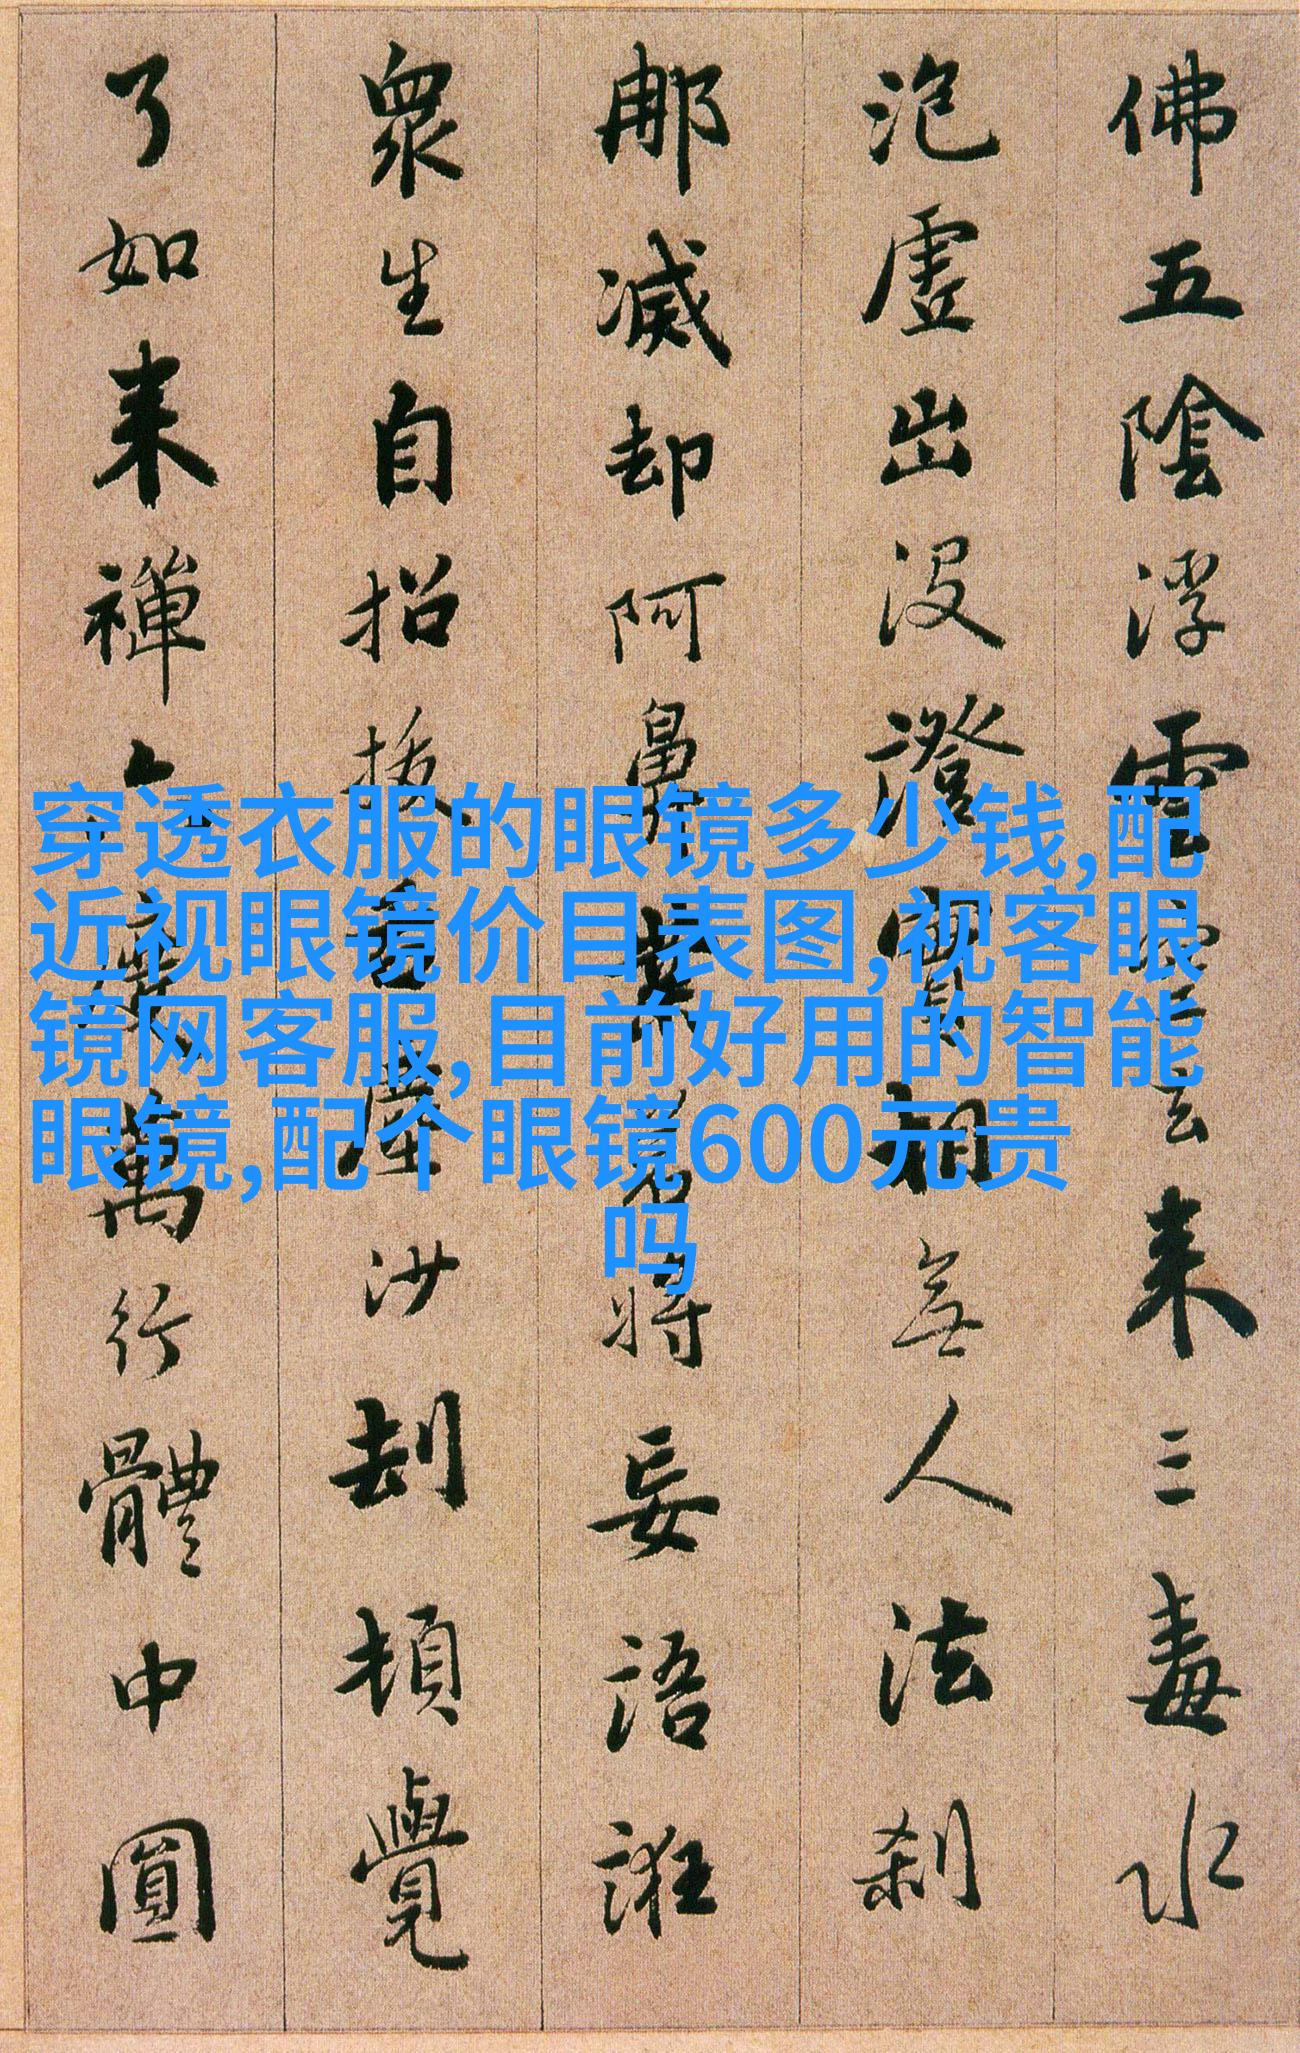 佛五陰浮雲空去来三毒水
泡虛出没證實相無人法刹
那滅却阿鼻業若將妄語誑
衆生自招拔舌塵沙刦頓覺
了如来禪六度萬行體中圓
穿透衣服的眼镜多少钱,配
近视眼镜价目表图,视客眼
镜网客服,目前好用的智能
眼镜,配个眼镜600元贵
吗